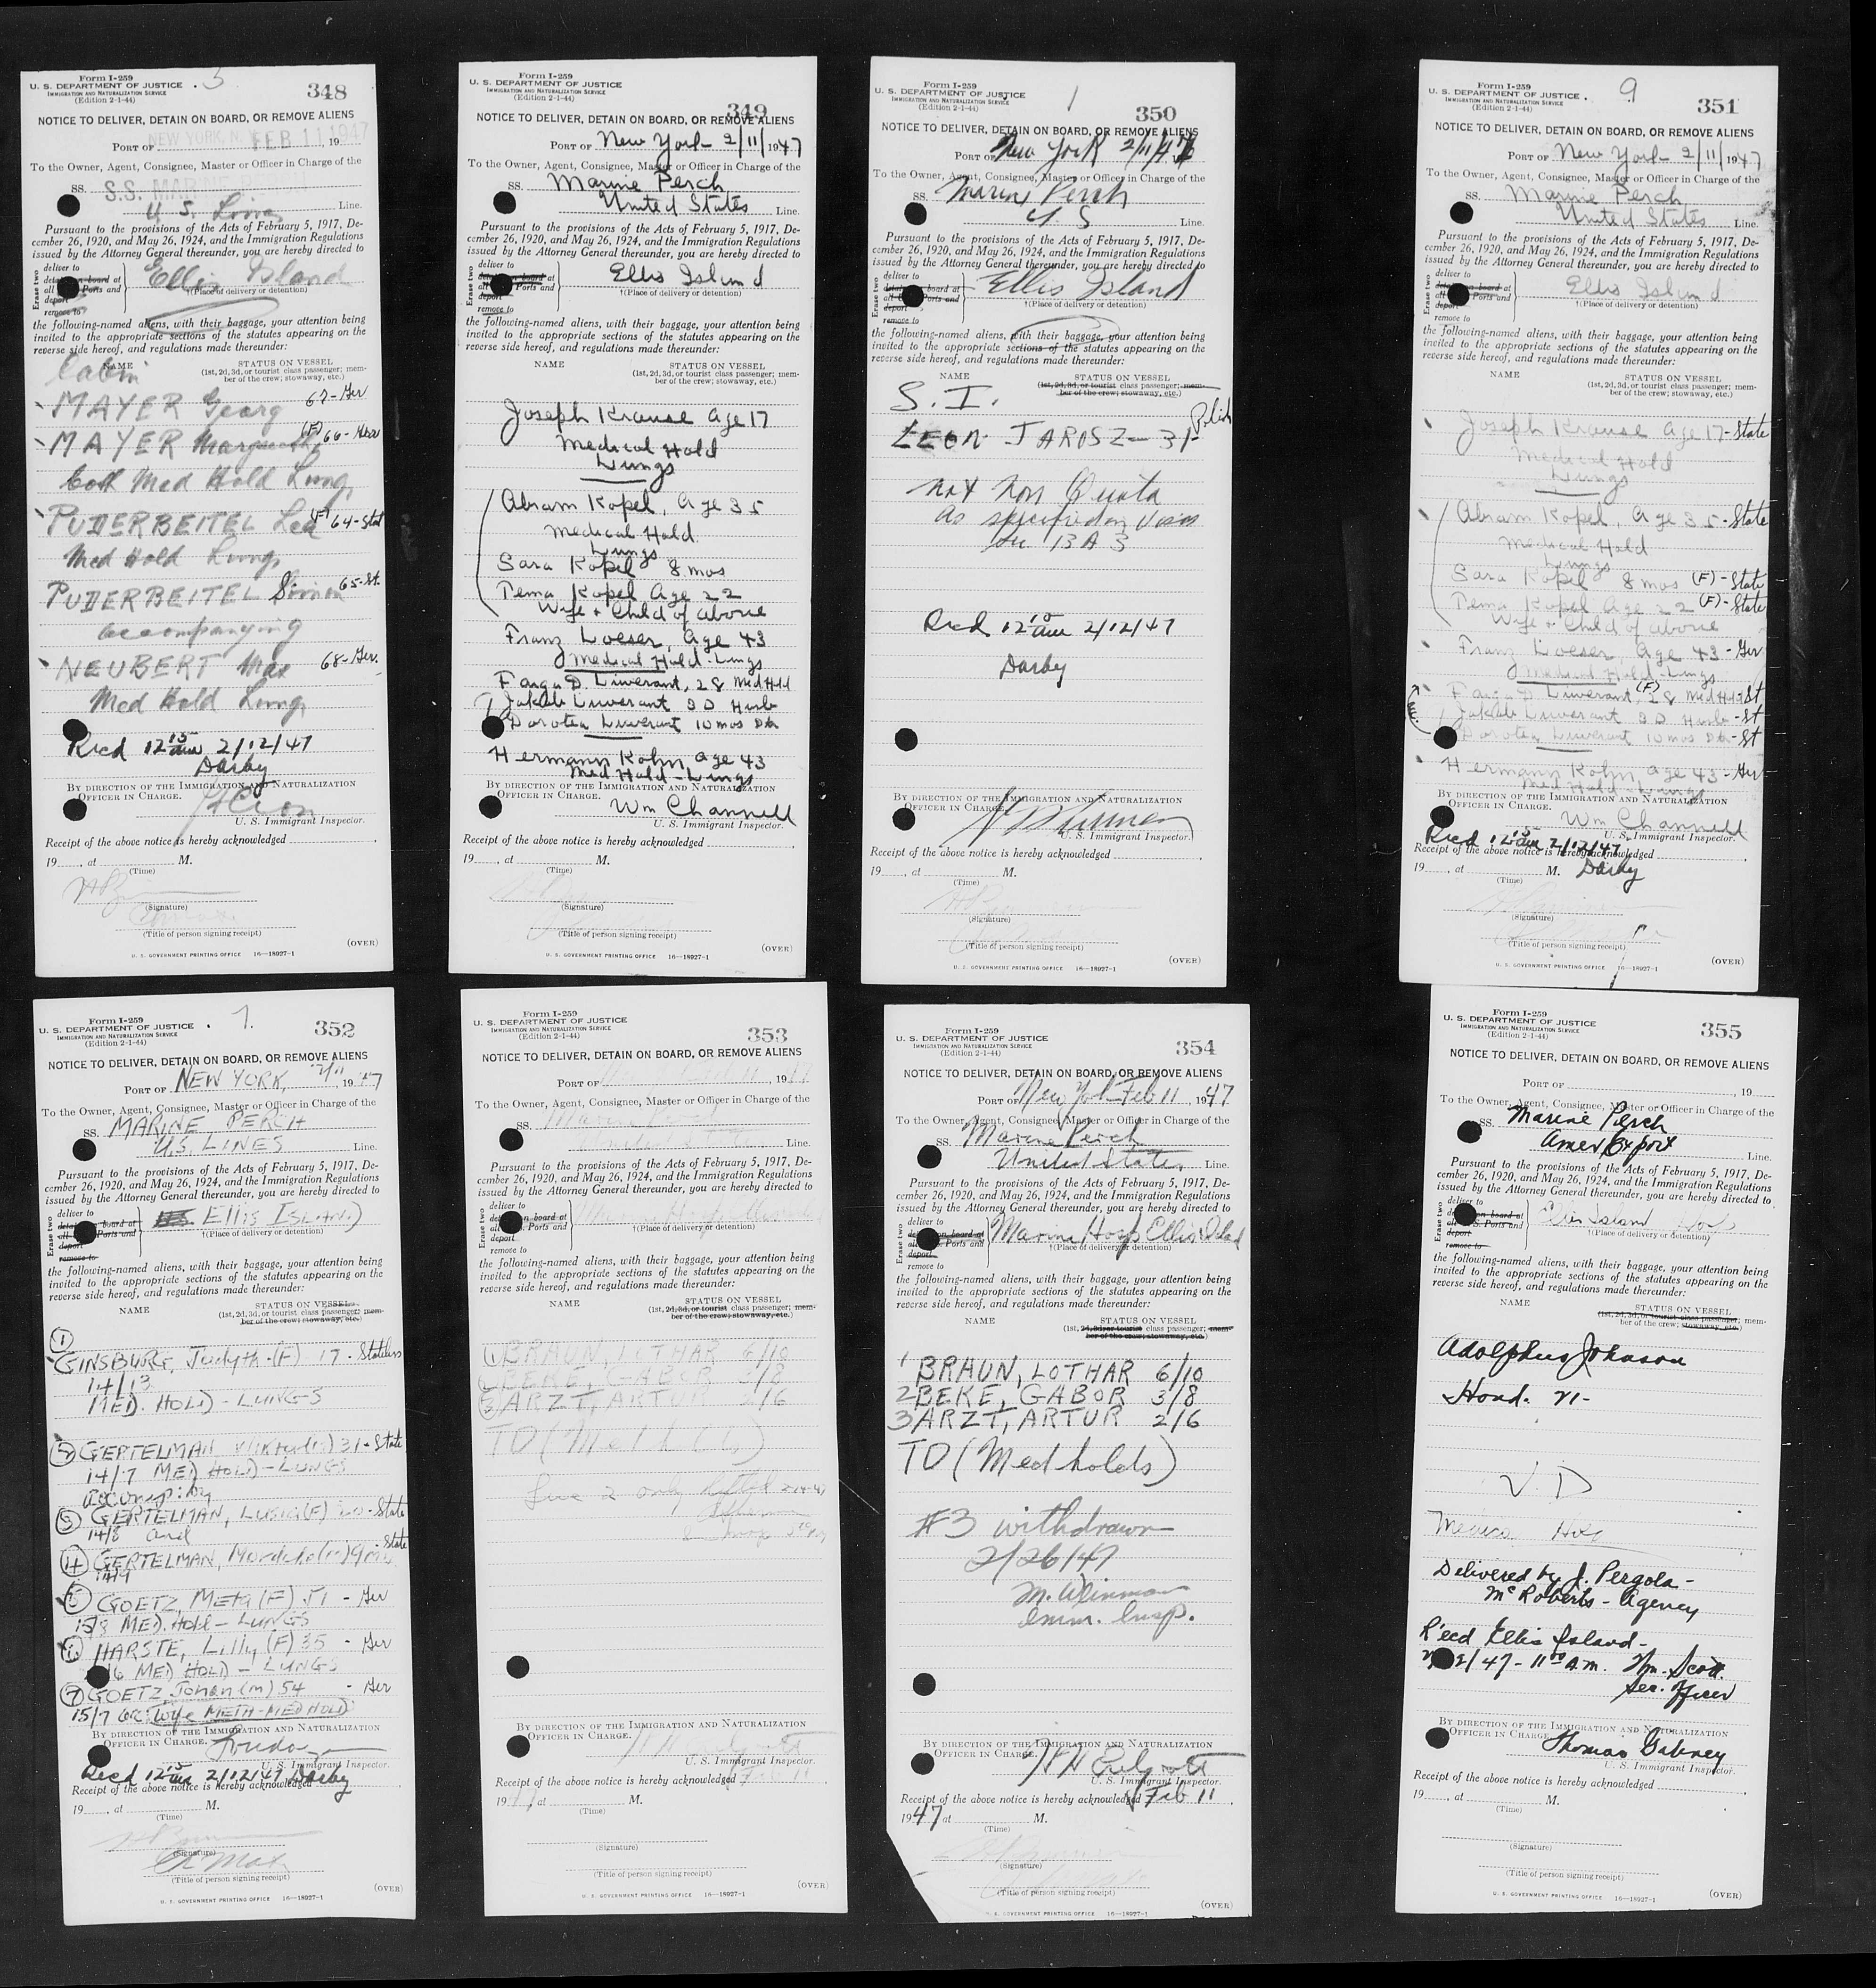 Form I-259
U. S. DEPARTMENT OF JUSTICE
IMMIGRATION AND NATURALIZATION SERVICE
(Edition 2-1-44)
348
NOTICE TO DELIVER, DETAIN ON BOARD, OR REMOVE ALIENS
NEW YORK, N. FEB 11 1947
PORT OF , 19
To the Owner, Agent, Consignee, Master or Officer in Charge of the
SS. S.S. MARINE PERCH
U. S. Lines Line.
Pursuant to the provisions of the Acts of February 5, 1917, De-
cember 26, 1920, and May 26, 1924, and the Immigration Regulations
issued by the Attorney General thereunder, you are hereby directed to
Erase two
deliver to
board at
all Ports and
deport
remove to
Ellis Island
†(Place of delivery or detention)
the following-named aliens, with their baggage, your attention being
invited to the appropriate sections of the statutes appearing on the
reverse side hereof, and regulations made thereunder:
NAME STATUS ON VESSEL
(1st, 2d, 3d, or tourist class passenger; mem-
ber of the crew; stowaway, etc.)
Cabin
MAYER Georg 67-Ger
MAYER (F) 66-
both Med Hold Lungs
PUDERBEITEL Lea (F) 64-Stat
Med Hold Lungs
PUDERBEITEL 65-St.
accompanying
NEUBERT Max 68-Ger.
Med Hold Lungs
Recd 12 15 am 2/12/47
Darby
BY DIRECTION OF THE IMMIGRATION AND NATURALIZATION
OFFICER IN CHARGE.
U. S. Immigrant Inspector.
Receipt of the above notice is hereby acknowledged
19 , at M.
(Time)
(Signature)
(Title of person signing receipt)
(OVER)
U. S. GOVERNMENT PRINTING OFFICE 16—18927-1
Form I-259
U. S. DEPARTMENT OF JUSTICE
IMMIGRATION AND NATURALIZATION SERVICE
(Edition 2-1-44)
349
NOTICE TO DELIVER, DETAIN ON BOARD, OR REMOVE ALIENS
PORT OF New York 2/11/1947
To the Owner, Agent, Consignee, Master or Officer in Charge of the
SS. Marine Perch
United States Line.
Pursuant to the provisions of the Acts of February 5, 1917, De-
cember 26, 1920, and May 26, 1924, and the Immigration Regulations
issued by the Attorney General thereunder, you are hereby directed to
Erase two
deliver to
board at
all Ports and
deport
remove to
Ellis Island
†(Place of delivery or detention)
the following-named aliens, with their baggage, your attention being
invited to the appropriate sections of the statutes appearing on the
reverse side hereof, and regulations made thereunder:
NAME STATUS ON VESSEL
(1st, 2d, 3d, or tourist class passenger; mem-
ber of the crew; stowaway, etc.)
Joseph Krause Age 17
Medical Hold
Lungs
Abram Kopel, Age 35
Medical Hold
Lungs
Sara Kopel 8 mos
Pema Kopel Age 22
Wife + Child of above
Franz Loeser, Age 43
Medical Hold-Lungs
Fajga D. Liwerant, 28 Med Hld
Jakob Liwerant 30 Husb
Dorotea Liwerant 10 mos Dtr
Hermann Kohn, age 43
Med Hold-Lungs
BY DIRECTION OF THE IMMIGRATION AND NATURALIZATION
OFFICER IN CHARGE.
Wm Channell
U. S. Immigrant Inspector.
Receipt of the above notice is hereby acknowledged
19 , at M.
(Time)
(Signature)
(Title of person signing receipt)
(OVER)
U. S. GOVERNMENT PRINTING OFFICE 16—18927-1
Form I-259
U. S. DEPARTMENT OF JUSTICE 1
IMMIGRATION AND NATURALIZATION SERVICE
(Edition 2-1-44)
350
NOTICE TO DELIVER, DETAIN ON BOARD, OR REMOVE ALIENS
PORT OF New York 2/11/47
To the Owner, Agent, Consignee, Master or Officer in Charge of the
SS. Marine Perch
U S Line.
Pursuant to the provisions of the Acts of February 5, 1917, De-
cember 26, 1920, and May 26, 1924, and the Immigration Regulations
issued by the Attorney General thereunder, you are hereby directed to
Erase two
deliver to
board at
all Ports and
deport
remove to
Ellis Island
†(Place of delivery or detention)
the following-named aliens, with their baggage, your attention being
invited to the appropriate sections of the statutes appearing on the
reverse side hereof, and regulations made thereunder:
NAME STATUS ON VESSEL
(1st, 2d, 3d, or tourist class passenger; mem-
ber of the crew; stowaway, etc.)
S. I.
Polish
LEON JAROSZ - 31-
not Non Quota
as specified on Visa
13 A 3
Recd 12 15 am 2/12/47
Darby
BY DIRECTION OF THE IMMIGRATION AND NATURALIZATION
OFFICER IN CHARGE.
U. S. Immigrant Inspector.
Receipt of the above notice is hereby acknowledged
19 , at M.
(Time)
(Signature)
(Title of person signing receipt)
(OVER)
U. S. GOVERNMENT PRINTING OFFICE 16—18927-1
Form I-259
U. S. DEPARTMENT OF JUSTICE 9
IMMIGRATION AND NATURALIZATION SERVICE
(Edition 2-1-44)
351
NOTICE TO DELIVER, DETAIN ON BOARD, OR REMOVE ALIENS
PORT OF New York 2/11/1947
To the Owner, Agent, Consignee, Master or Officer in Charge of the
SS. Marine Perch
United States Line.
Pursuant to the provisions of the Acts of February 5, 1917, De-
cember 26, 1920, and May 26, 1924, and the Immigration Regulations
issued by the Attorney General thereunder, you are hereby directed to
Erase two
deliver to
board at
all Ports and
deport
remove to
Ellis Island
†(Place of delivery or detention)
the following-named aliens, with their baggage, your attention being
invited to the appropriate sections of the statutes appearing on the
reverse side hereof, and regulations made thereunder:
NAME STATUS ON VESSEL
(1st, 2d, 3d, or tourist class passenger; mem-
ber of the crew; stowaway, etc.)
Joseph Krause Age 17-State
Medical Hold
Lungs
Abram Kopel, Age 35-State
Medical Hold
Lungs
Sara Kopel 8 mos (F)-State
Pema Kopel Age 22 (F)-State
Wife + Child of above
Franz Loeser, Age 43-Ger
Medical Hold-Lungs
Fajga D. Liwerant, (F) 28 Med Hld-St
Jakob Liwerant 30 Husb-St
Dorotea Liwerant 10 mos Dtr-St
Hermann Kohn, age 43-Ger
Med Hold-Lungs
BY DIRECTION OF THE IMMIGRATION AND NATURALIZATION
OFFICER IN CHARGE.
Wm Channell
U. S. Immigrant Inspector.
Recd 12 15 am 2/12/47
Receipt of the above notice is hereby acknowledged
19 , at M. Darby
(Time)
(Signature)
(Title of person signing receipt)
(OVER)
U. S. GOVERNMENT PRINTING OFFICE 16—18927-1
Form I-259
U. S. DEPARTMENT OF JUSTICE 7.
IMMIGRATION AND NATURALIZATION SERVICE
(Edition 2-1-44)
352
NOTICE TO DELIVER, DETAIN ON BOARD, OR REMOVE ALIENS
PORT OF NEW YORK, 2/11, 1947
To the Owner, Agent, Consignee, Master or Officer in Charge of the
SS. MARINE PERCH
U.S. LINES Line.
Pursuant to the provisions of the Acts of February 5, 1917, De-
cember 26, 1920, and May 26, 1924, and the Immigration Regulations
issued by the Attorney General thereunder, you are hereby directed to
Erase two
deliver to
board at
all Ports and
deport
remove to
ELLIS ISLAND
†(Place of delivery or detention)
the following-named aliens, with their baggage, your attention being
invited to the appropriate sections of the statutes appearing on the
reverse side hereof, and regulations made thereunder:
NAME STATUS ON VESSEL
(1st, 2d, 3d, or tourist class passenger; mem-
ber of the crew; stowaway, etc.)
1
GINSBURG, Judyth-(F) 17-Stateless
14/13
MED. HOLD - LUNGS
2 GERTELMAN, 31-State
14/7 MED HOLD-LUNGS
accomp. by
3 GERTELMAN, LUSIA (F) 20-State
14/8 and
4 GERTELMAN, Mordche (m) 9 mos -State
14/9
5 GOETZ, Meta (F) 51 - Ger
15/8 MED. Hold - LUNGS
6 HARSTE, Lilly (F) 35 - Ger
MED HOLD - LUNGS
7 GOETZ, Johan (m) 54 - Ger
15/7 acc. wife META-MED HOLD
BY DIRECTION OF THE IMMIGRATION AND NATURALIZATION
OFFICER IN CHARGE.
U. S. Immigrant Inspector.
Recd 12 15 am 2/12/47 Darby
Receipt of the above notice is hereby acknowledged
19 , at M.
(Time)
(Signature)
(Title of person signing receipt)
(OVER)
U. S. GOVERNMENT PRINTING OFFICE 16—18927-1
Form I-259
U. S. DEPARTMENT OF JUSTICE
IMMIGRATION AND NATURALIZATION SERVICE
(Edition 2-1-44)
353
NOTICE TO DELIVER, DETAIN ON BOARD, OR REMOVE ALIENS
PORT OF 11, 1947
To the Owner, Agent, Consignee, Master or Officer in Charge of the
SS. Marine Perch
United States Line.
Pursuant to the provisions of the Acts of February 5, 1917, De-
cember 26, 1920, and May 26, 1924, and the Immigration Regulations
issued by the Attorney General thereunder, you are hereby directed to
Erase two
deliver to
on board at
all Ports and
deport
remove to
Marine Hosp
†(Place of delivery or detention)
the following-named aliens, with their baggage, your attention being
invited to the appropriate sections of the statutes appearing on the
reverse side hereof, and regulations made thereunder:
NAME STATUS ON VESSEL
(1st, 2d, 3d, or tourist class passenger; mem-
ber of the crew; stowaway, etc.)
1 BRAUN, LOTHAR 6/10
2 BEKE, GABOR 3/8
3 ARZT, ARTUR 2/6
TD (Med holds)
2 only lifted
BY DIRECTION OF THE IMMIGRATION AND NATURALIZATION
OFFICER IN CHARGE.
U. S. Immigrant Inspector.
Receipt of the above notice is hereby acknowledged Feb 11
1947, at M.
(Time)
(Signature)
(Title of person signing receipt)
(OVER)
U. S. GOVERNMENT PRINTING OFFICE 16—18927-1
Form I-259
U. S. DEPARTMENT OF JUSTICE
IMMIGRATION AND NATURALIZATION SERVICE
(Edition 2-1-44)
354
NOTICE TO DELIVER, DETAIN ON BOARD, OR REMOVE ALIENS
PORT OF New York Feb 11, 1947
To the Owner, Agent, Consignee, Master or Officer in Charge of the
SS. Marine Perch
United States Line.
Pursuant to the provisions of the Acts of February 5, 1917, De-
cember 26, 1920, and May 26, 1924, and the Immigration Regulations
issued by the Attorney General thereunder, you are hereby directed to
Erase two
deliver to
on board at
all Ports and
deport
remove to
Marine Hosp Ellis Island
†(Place of delivery or detention)
the following-named aliens, with their baggage, your attention being
invited to the appropriate sections of the statutes appearing on the
reverse side hereof, and regulations made thereunder:
NAME STATUS ON VESSEL
(1st, 2d, 3d, or tourist class passenger; mem-
ber of the crew; stowaway, etc.)
1 BRAUN, LOTHAR 6/10
2 BEKE, GABOR 3/8
3 ARZT, ARTUR 2/6
TD (Med holds)
#3 withdrawn
2/26/47
M. Weinman
Imm. Insp.
BY DIRECTION OF THE IMMIGRATION AND NATURALIZATION
OFFICER IN CHARGE.
U. S. Immigrant Inspector.
Receipt of the above notice is hereby acknowledged Feb 11
1947 at M.
(Time)
(Signature)
(Title of person signing receipt)
(OVER)
U. S. GOVERNMENT PRINTING OFFICE 16—18927-1
Form I-259
U. S. DEPARTMENT OF JUSTICE
IMMIGRATION AND NATURALIZATION SERVICE
(Edition 2-1-44)
355
NOTICE TO DELIVER, DETAIN ON BOARD, OR REMOVE ALIENS
PORT OF , 19
To the Owner, Agent, Consignee, Master or Officer in Charge of the
SS. Marine Perch
Amer Export Line.
Pursuant to the provisions of the Acts of February 5, 1917, De-
cember 26, 1920, and May 26, 1924, and the Immigration Regulations
issued by the Attorney General thereunder, you are hereby directed to
Erase two
deliver to
on board at
all U. S. Ports and
deport
remove to
Ellis Island Hosp
†(Place of delivery or detention)
the following-named aliens, with their baggage, your attention being
invited to the appropriate sections of the statutes appearing on the
reverse side hereof, and regulations made thereunder:
NAME STATUS ON VESSEL
(1st, 2d, 3d, or tourist class passenger; mem-
ber of the crew; stowaway, etc.)
Adolphus Johnson
Hond. 21-
V. D
Medical Hold
Delivered by J. Pergola -
McRoberts - Agency
R'ecd Ellis Island -
2/47 - 11 00 A.M. Wm. Scott
Sec. Officer
BY DIRECTION OF THE IMMIGRATION AND NATURALIZATION
OFFICER IN CHARGE.
Thomas Gabney
U. S. Immigrant Inspector.
Receipt of the above notice is hereby acknowledged
19 , at M.
(Time)
(Signature)
(Title of person signing receipt)
(OVER)
U. S. GOVERNMENT PRINTING OFFICE 16—18927-1